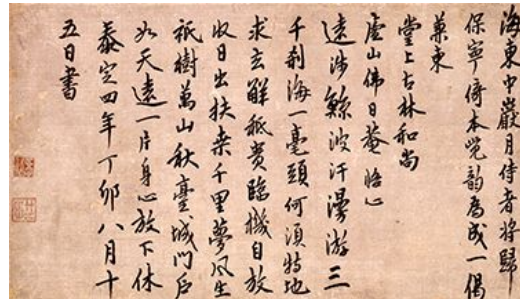 海東中巖月侍者將歸
保寧倚本覺韵為成一偈
兼柬
堂上古林和尚
廬山佛日菴 悟心
遠涉鯨波汗漫游三
千刹海一毫頭何須特地
求玄解秪貴臨機自放
收日出扶桒千里夢風生
祇樹萬山秋臺城門戶
如天遠一片身心放下休
泰定四年丁卯八月十
五日書